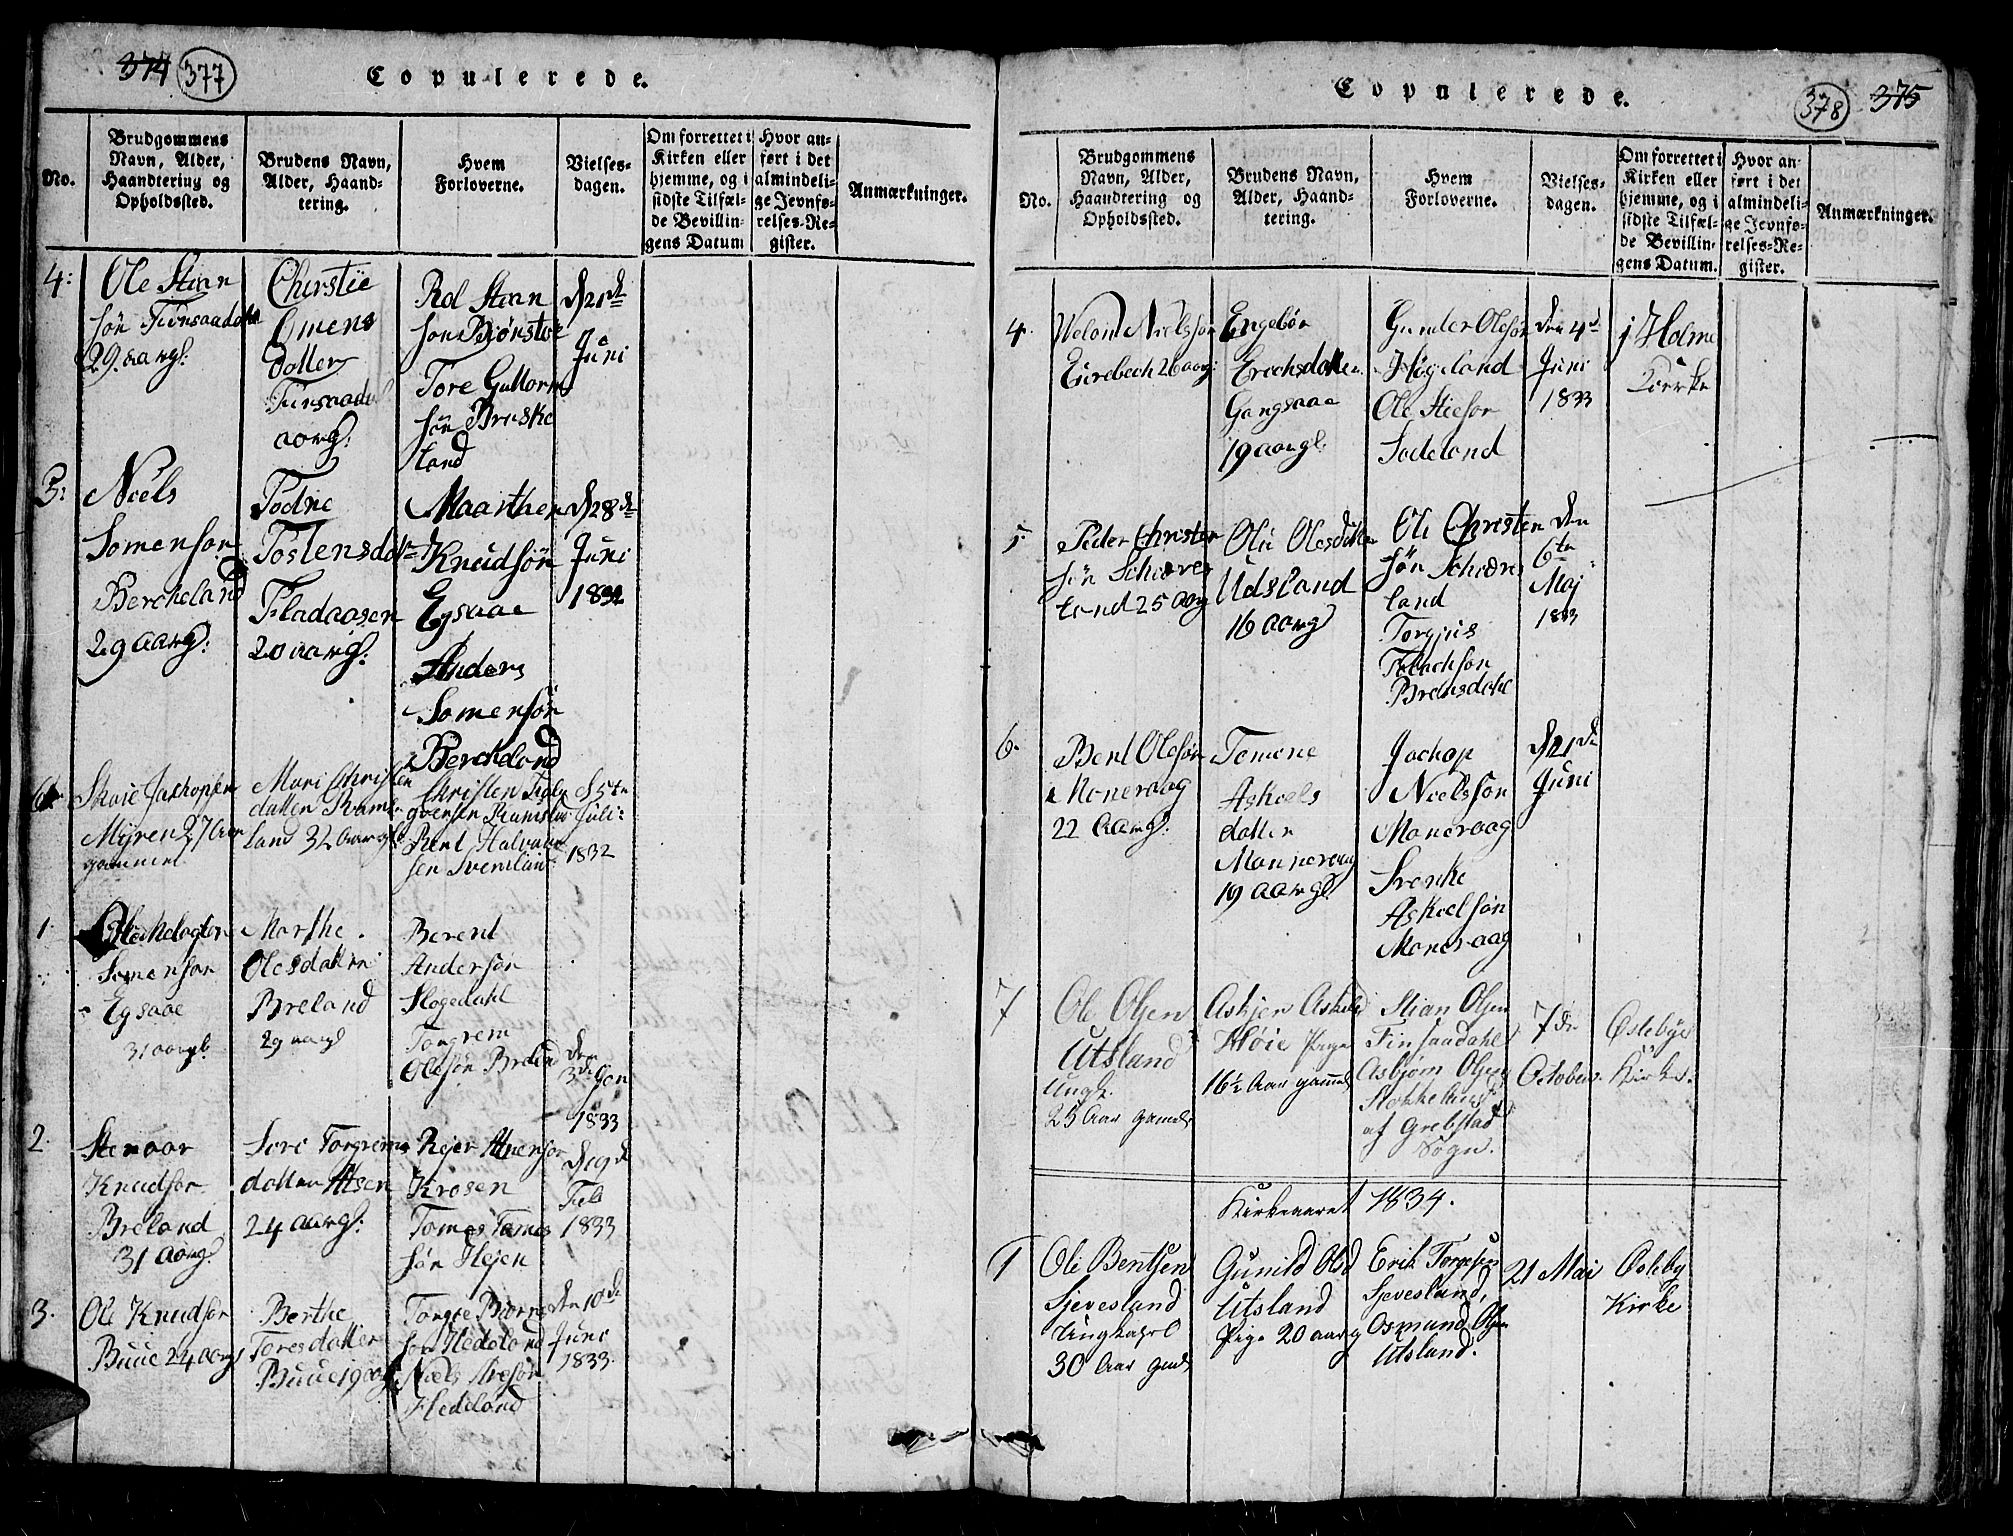 374 377
Copulerede.
No.
Brudgommens
Navn, Alder,
Haandtering og
Opholdssted.
Brudens Navn,
Alder, Haand-
tering.
Hvem
Forloverne.
Vielses-
dagen.
Om forrettet i
Kirken eller
hjemme, og i
sidste Tilfæl-
de Bevillin-
gens Datum
Hvor an-
ført i det
almindeli-
ge Jevnfø-
relses-Re-
gister.
Anmærkninger.
4:
Ole Stian
søn
29 aarg:
Christie
Omens
dotter
aarg:
Rol Stian
son
Tore Guttorm
søn Bruske
land
d 21de
Juni
5:
Niels
Somenson
Bercheland
29 aarg:
Todne
Tostensdatr
Fladaasen
20 aarg:
Maarthen
Knudsøn
Egsaae
Anders
Somensøn
Bercheland
d 28de
Juni
1832
6
Jachopsen
Myren 27 Aar
gammel
Mari Christen
datter
land 32 Aarg
Christen
Bent Halvaar
sen
d 5te
Juli:
1832
1.
Somenson
Egsaae
31 aargl.
Marthe
Olesdatter
Breland
29 aargl
Berent
Andersøn
Høgedahl
Torgrem
Olesøn Breland
den
3de Jan
1833
2.
Stenaar
Knudson
Breland
31 aargl
Sore Torgrems
datter
24 aarg:
Rejer
Krosen
Tomes Tomes
søn Hejen
d 19de
Feb
1833
3.
Ole Knudsøn
Buue 24 aargl
Berthe
Toresdatter
Buue 19 aarg
Torgie Biørns
søn Hedeland
Niels
Hedeland
den 10de
Juni
1833.
Copulerede.
378 375
No.
Brudgommens
Navn, Alder,
Haandtering og
Opholdssted.
Brudens Navn,
Alder, Haand-
tering.
Hvem
Forloverne.
Vielses-
dagen.
Om forrettet i
Kirken eller
hjemme, og i
sidste Tilfæl-
de Bevillin-
gens Datum.
Hvor an-
ført i det
almindeli-
ge Jevnfø-
relses-Re-
gister.
Anmærkninger.
4.
Nielsson
Eirebech 26 aarg:
Engebør
Erechsdatter
Gangsaae
19 aargl.
Gunder Olesøn
Høgeland
Ole
Sodeland
den 4de
Juni
1833
i Holme
Kierke
5
Peder Christen
søn Schieres
land 25 aarg
Olii Olesdatter
Udsland
16 aarg
Oli Christen
søn Schieres
land
Torgius
Brensdahl
den
6te
Maj
1833
6.
Bent Olesøn
Moneraag
22 Aarg:
Tomine
Askiels
datter
Monneraag
19 aargl
Jachop
Nielsson
Moneraag
Askielsøn
Moneraag
d 21de
Juni
7
Ole Olsen
Utsland
Ungk.
25 Aar gamel
Asbjør
Høie Pige
16½ Aar gammel
Stian Olsen
Finsaadahl
Asbjørn Olsen
af Grebstad
Sogn.
7de
October.
Øslebye
Kirke.
Kirkeaaret 1834.
1
Ole Bentsen
Sjevesland
Ungkarl
30 Aar gml
Gunild Olsd
Utsland
Pige 20 aarg
Erik
Sjevesland,
Osmund Olsen
Utsland.
21 Mai
Øsleby
Kirke